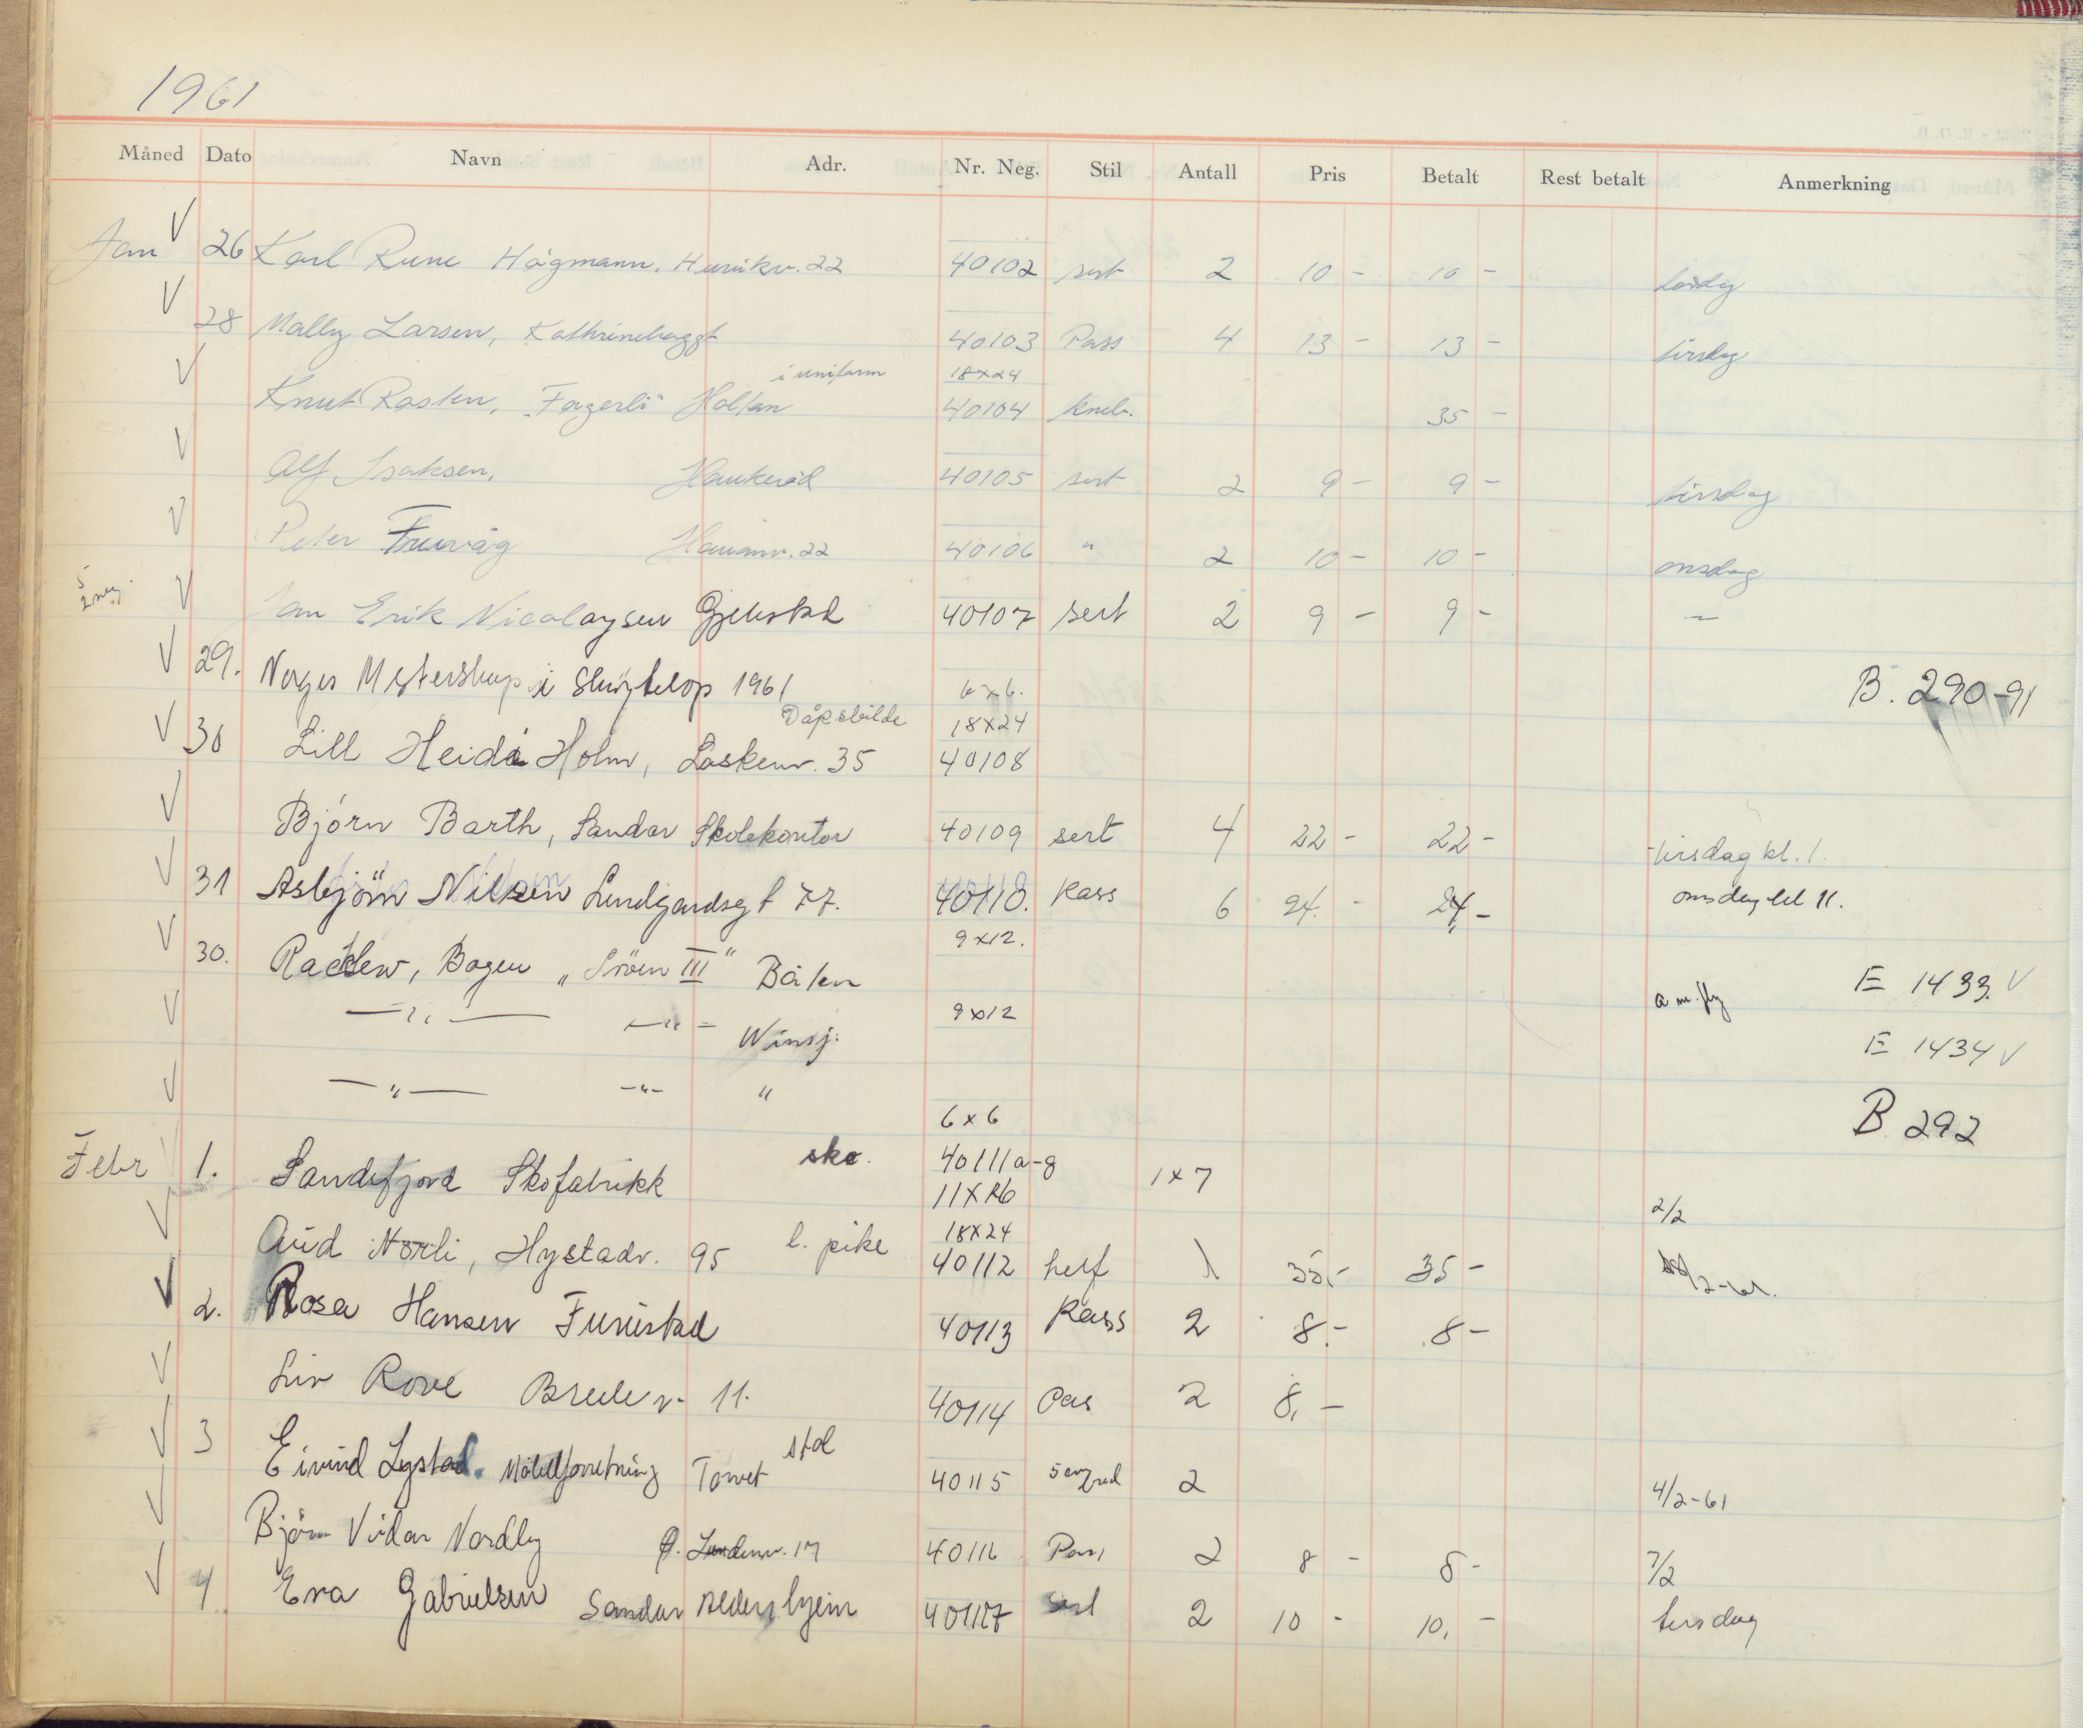 1961
Måned Dato Navn Adr. Nr. Neg. Stil Antall Pris Betalt Rest betalt Anmerkning
Jan 26 Karl Rune Hågmann. 22 40102 sert 2 10 - 10 -
28 Mally Larsen, 40103 Pass 4 13 - 13 - tirsdag
i uniform 18x24
Knut Rosten, "Fagerli" Holtan 40104 kneb. 35 -
Alf Isaksen, Haukerød 40105 sert 2 9 - 9 - tirsdag
Peter Furuvåg 22 40106 " 2 10 - 10 - onsdag
5
2 neg.
Jan Erik Nicolaysen Gjekstad 40107 sert 2 9 - 9 - -
29. Norges Mesterskap i Skøyteløp 1961 6x6. B. 290-91
Dåpsbilde 18x24
30 Lill Heidi Holm, Laskenv. 35 40108
Bjørn Barth, Sandar Skolekontor 40109 sert 4 22 - 22 - tirsdag kl. 1.
31 Asbjörn Nilsen Lundgaardsgt 77. 40110. Pass 6 24. - 24, - onsdag kl 11.
9x12.
30. Bogen "Sröen III" Båten a m. fly E 1433. V
— " — — " — Winsj. 9x12 E 1434 V
— " — - " - "
6x6 B 292
Febr 1. Sandefjord Skofabrikk sko. 40111a-g 1x7
11x16 2/2
18x24
Arvid Norli, Hystadv. 95 l. pike 40112 helf 1 35,- 35 -
2. Rosa Hansen Furustad 40113 Pass 2 8.- 8 -
Liv Rove 11. 40114 Pas 2 8, -
stol
3 Eivind Lystad. Møbelforretning Torvet 40115 2 4/2-61
Björn Vidar Nordby 17 40116 Pass 2 8 - 8 - 7/2
4 Eva Gabrielsen Sandar Aldershjem 40117 sert 2 10 - 10, - tirsdag